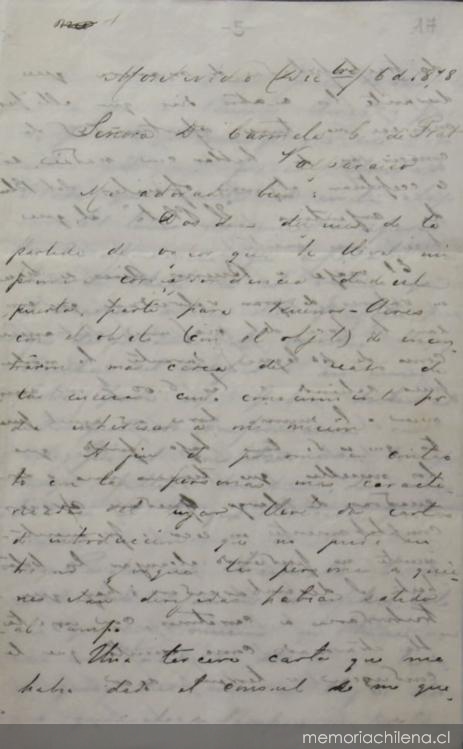 Montevideo Dicibre 6 de 1878
Señora Da Carmela C. de Prat
Valparaiso
Mi adorado bien:
Dos dias despues de la
partida del vapor que te lleva mi
primera correspondencia desde este
puerto, partí para Buenos-Aires
con el objeto (con el objeto) de encon
trarme mas cerca del teatro de
los sucesos cuyo conocimiento po
dia interesar a mi mision
A fin de ponerme en contac
to con las personas mas caracteri
zadas del lugar llevé dos cartas
de introduccion que no pude en
tregar porque las personas a quie
nes iban dirijidas habian salido
al campo.
Una tercera carta que me
habia dado el consul de no que
memoriachilena.cl